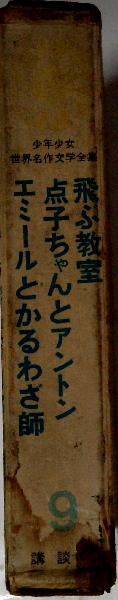 少年少女
世界名作文学全集
飛ぶ教室
点子ちゃんとアントン
エミールとかるわざ師
9
講談